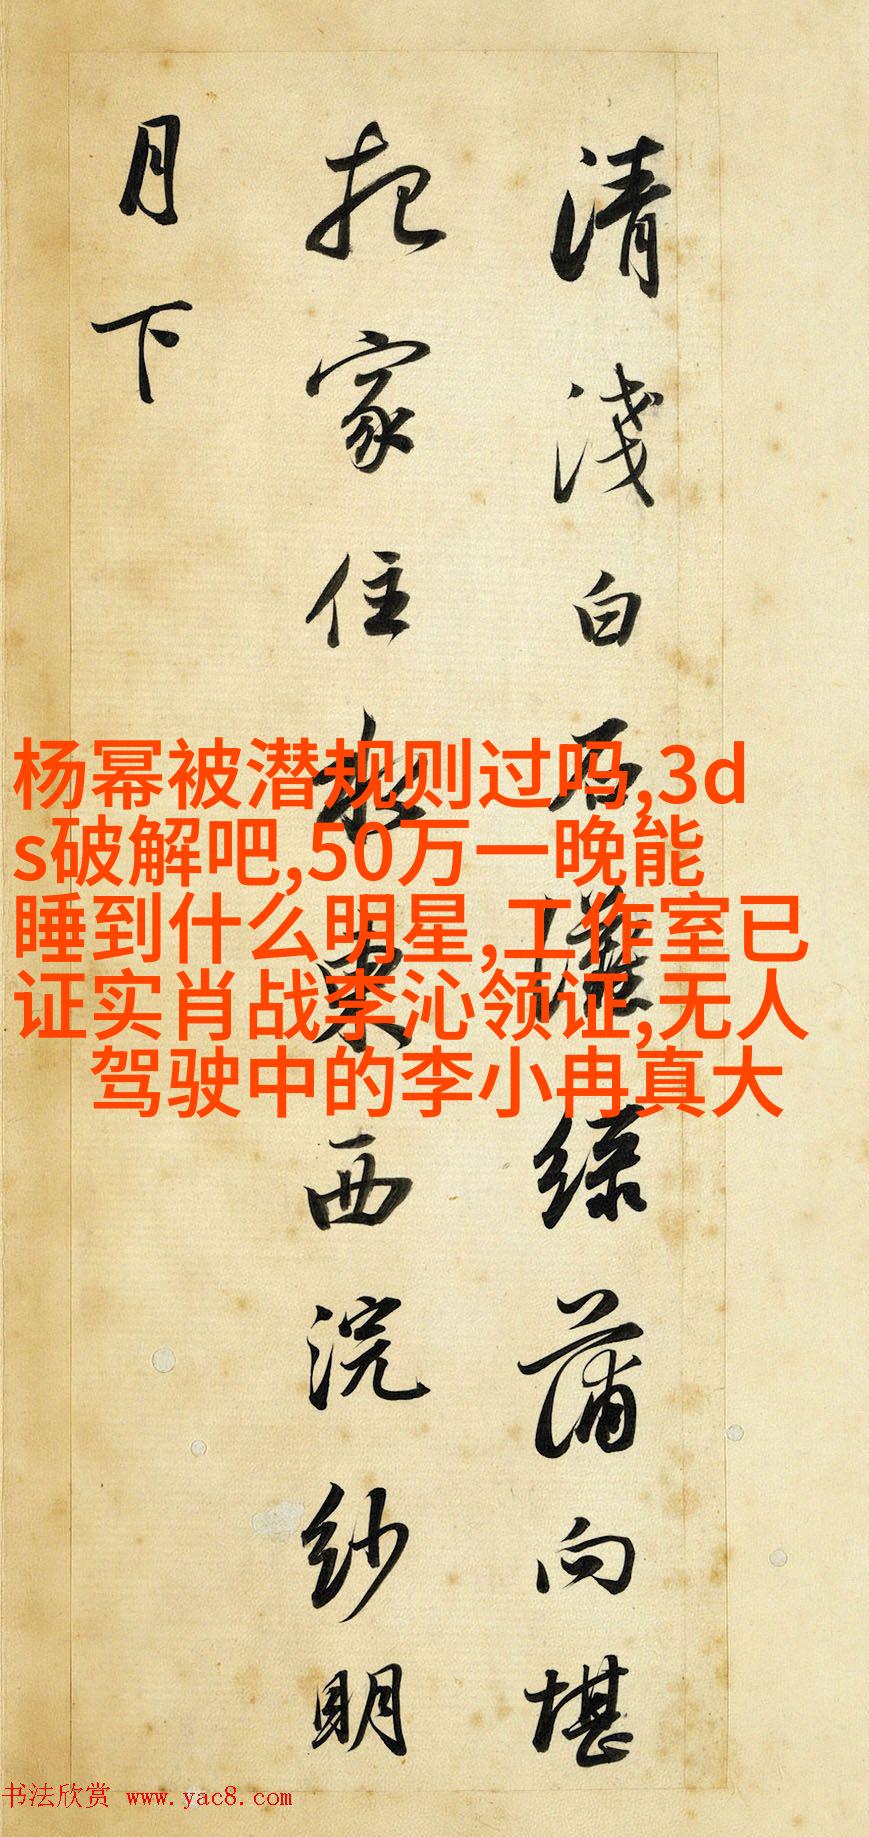 清淺白石灘綠蒲向堪
把家住水東西浣紗明
月下
杨幂被潜规则过吗,3d
s破解吧,50万一晚能
睡到什么明星,工作室已
证实肖战李沁领证,无人
驾驶中的李小冉真大
书法欣赏 www.yac8.com